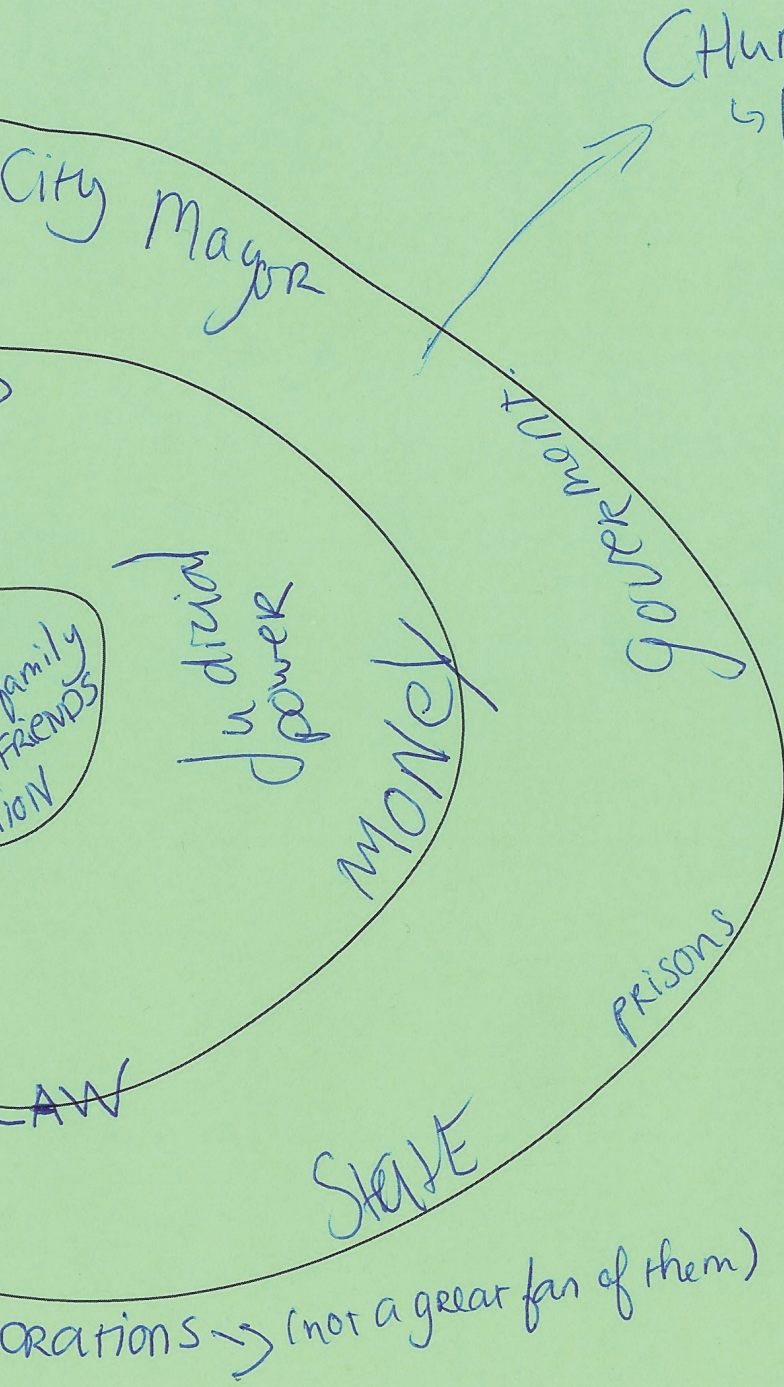 CHur
↳
City Mayor
Goverment.
Judicial
power
MONEY
family
FRIENDS
TION
PRISONS
LAW
StatE
ORations → (not a great fan of them)